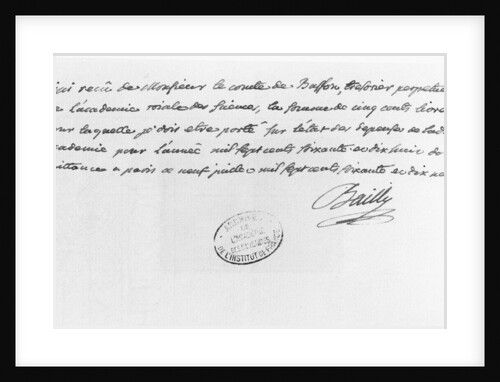 j'ai reçû de Monsieur le comte de Buffon, tresorier perpetuel
de L'academie roiale des sciences, la somme de cinq cents livres
pour laquelle je dois etre porté sur l'etat des depenses de
academie pour l'année mil sept cents soixante et dix huit
quittance a paris ce neuf juillet mil sept cents soixante et dix
Bailly
ARCHIVES
DE
L'ACADEMIE
DES SCIENCES
DE L'INSTITUT DE FRANCE